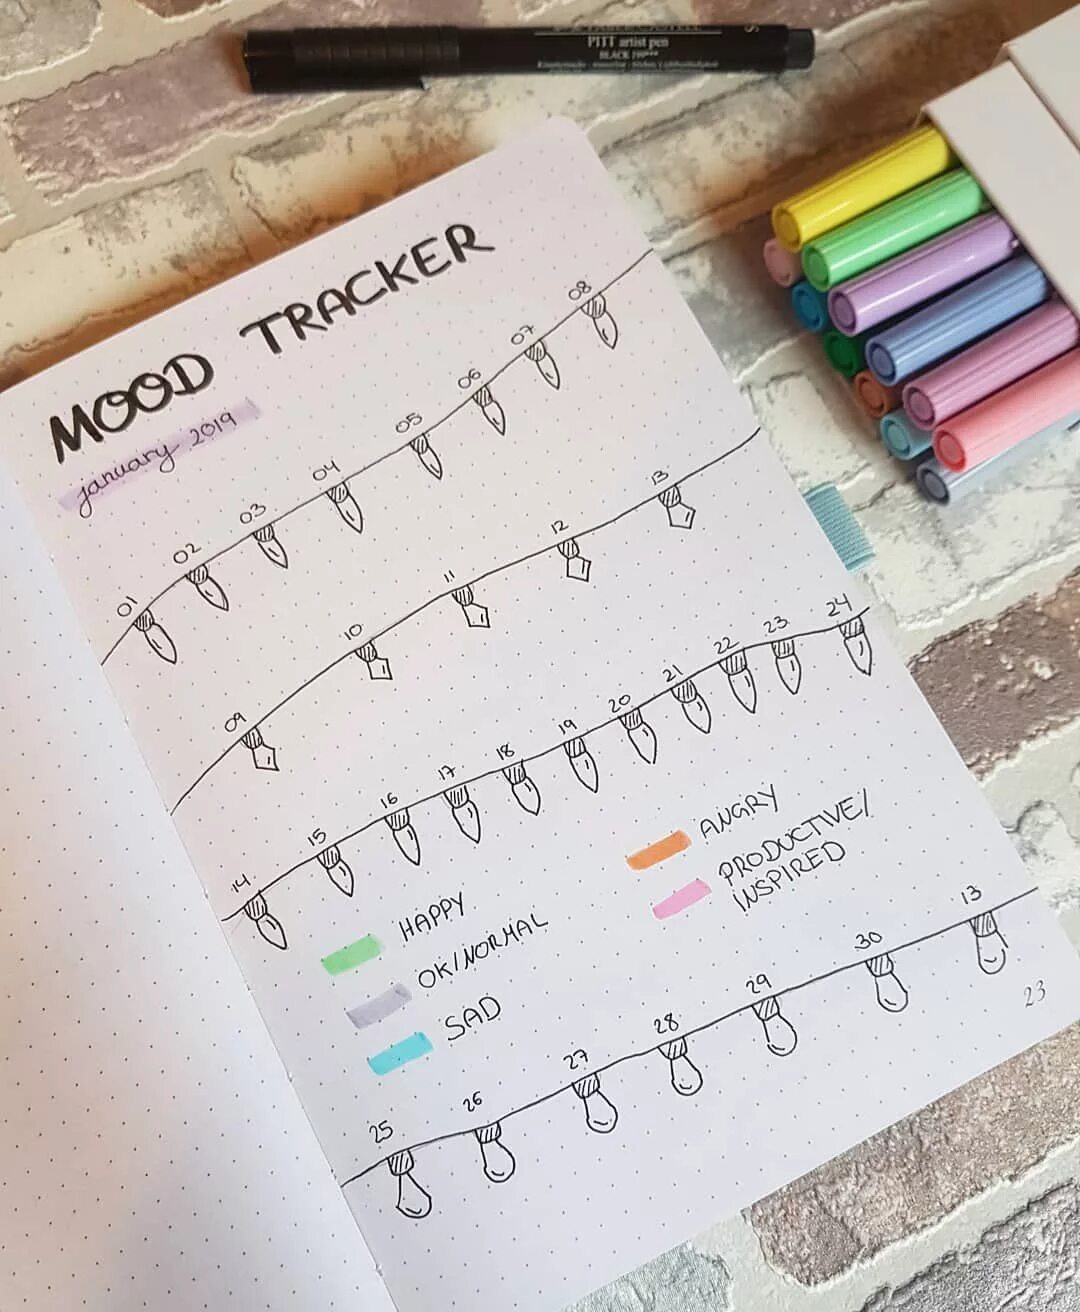 PITT artist pen
BLACK 199***
MOOD TRACKER
january 2019
01 02 03 04 05 06 07 08
09 10 11 12 13
14 15 16 17 18 19 20 21 22 23 24
HAPPY
OK/NORMAL
SAD
ANGRY
PRODUCTIVE/
INSPIRED
25 26 27 28 29 30 13
23